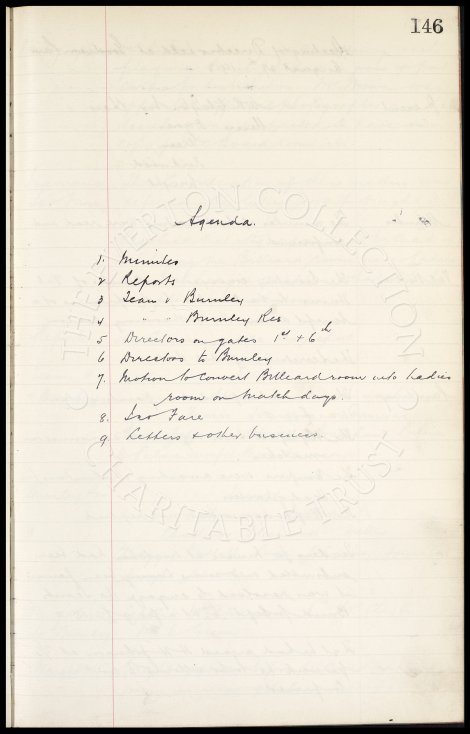 146
Agenda.
1. Minutes
2 Reports
3 Team v Burnley
4 " " Burnley Res
5 Directors on gates 1st + 6th
6 Directors to Burnley
7. Motion to convert Billiard room into Ladies
room on match days.
8. Fare
9 Letters & other business.
THE EVERTON COLLECTION
CHARITABLE TRUST